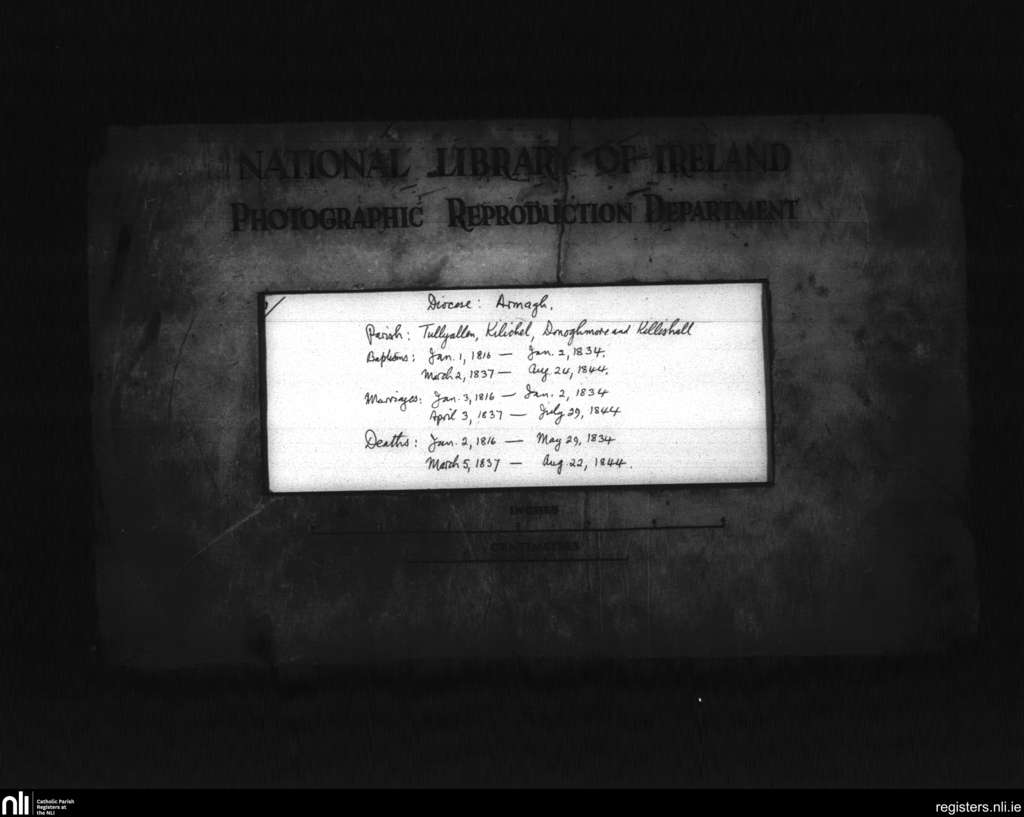 NATIONAL LIBRARY OF IRELAND
PHOTOGRAPHIC REPRODUCTION DEPARTMENT
Diocese: Armagh.
Parish: Tullyallen, Kilichel, Donoghmore and Killeshall
Baptisms: Jan. 1, 1816 — Jan. 2, 1834.
March 2, 1837 — Aug. 24, 1844.
Marriages: Jan. 3, 1816 — Jan. 2, 1834
April 3, 1837 — July 29, 1844
Deaths: Jan. 2, 1816 — May 29, 1834
March 5, 1837 — Aug 22, 1844.
INCHES
CENTIMETRES
nli Catholic Parish
Registers at
the NLI
registers.nli.ie